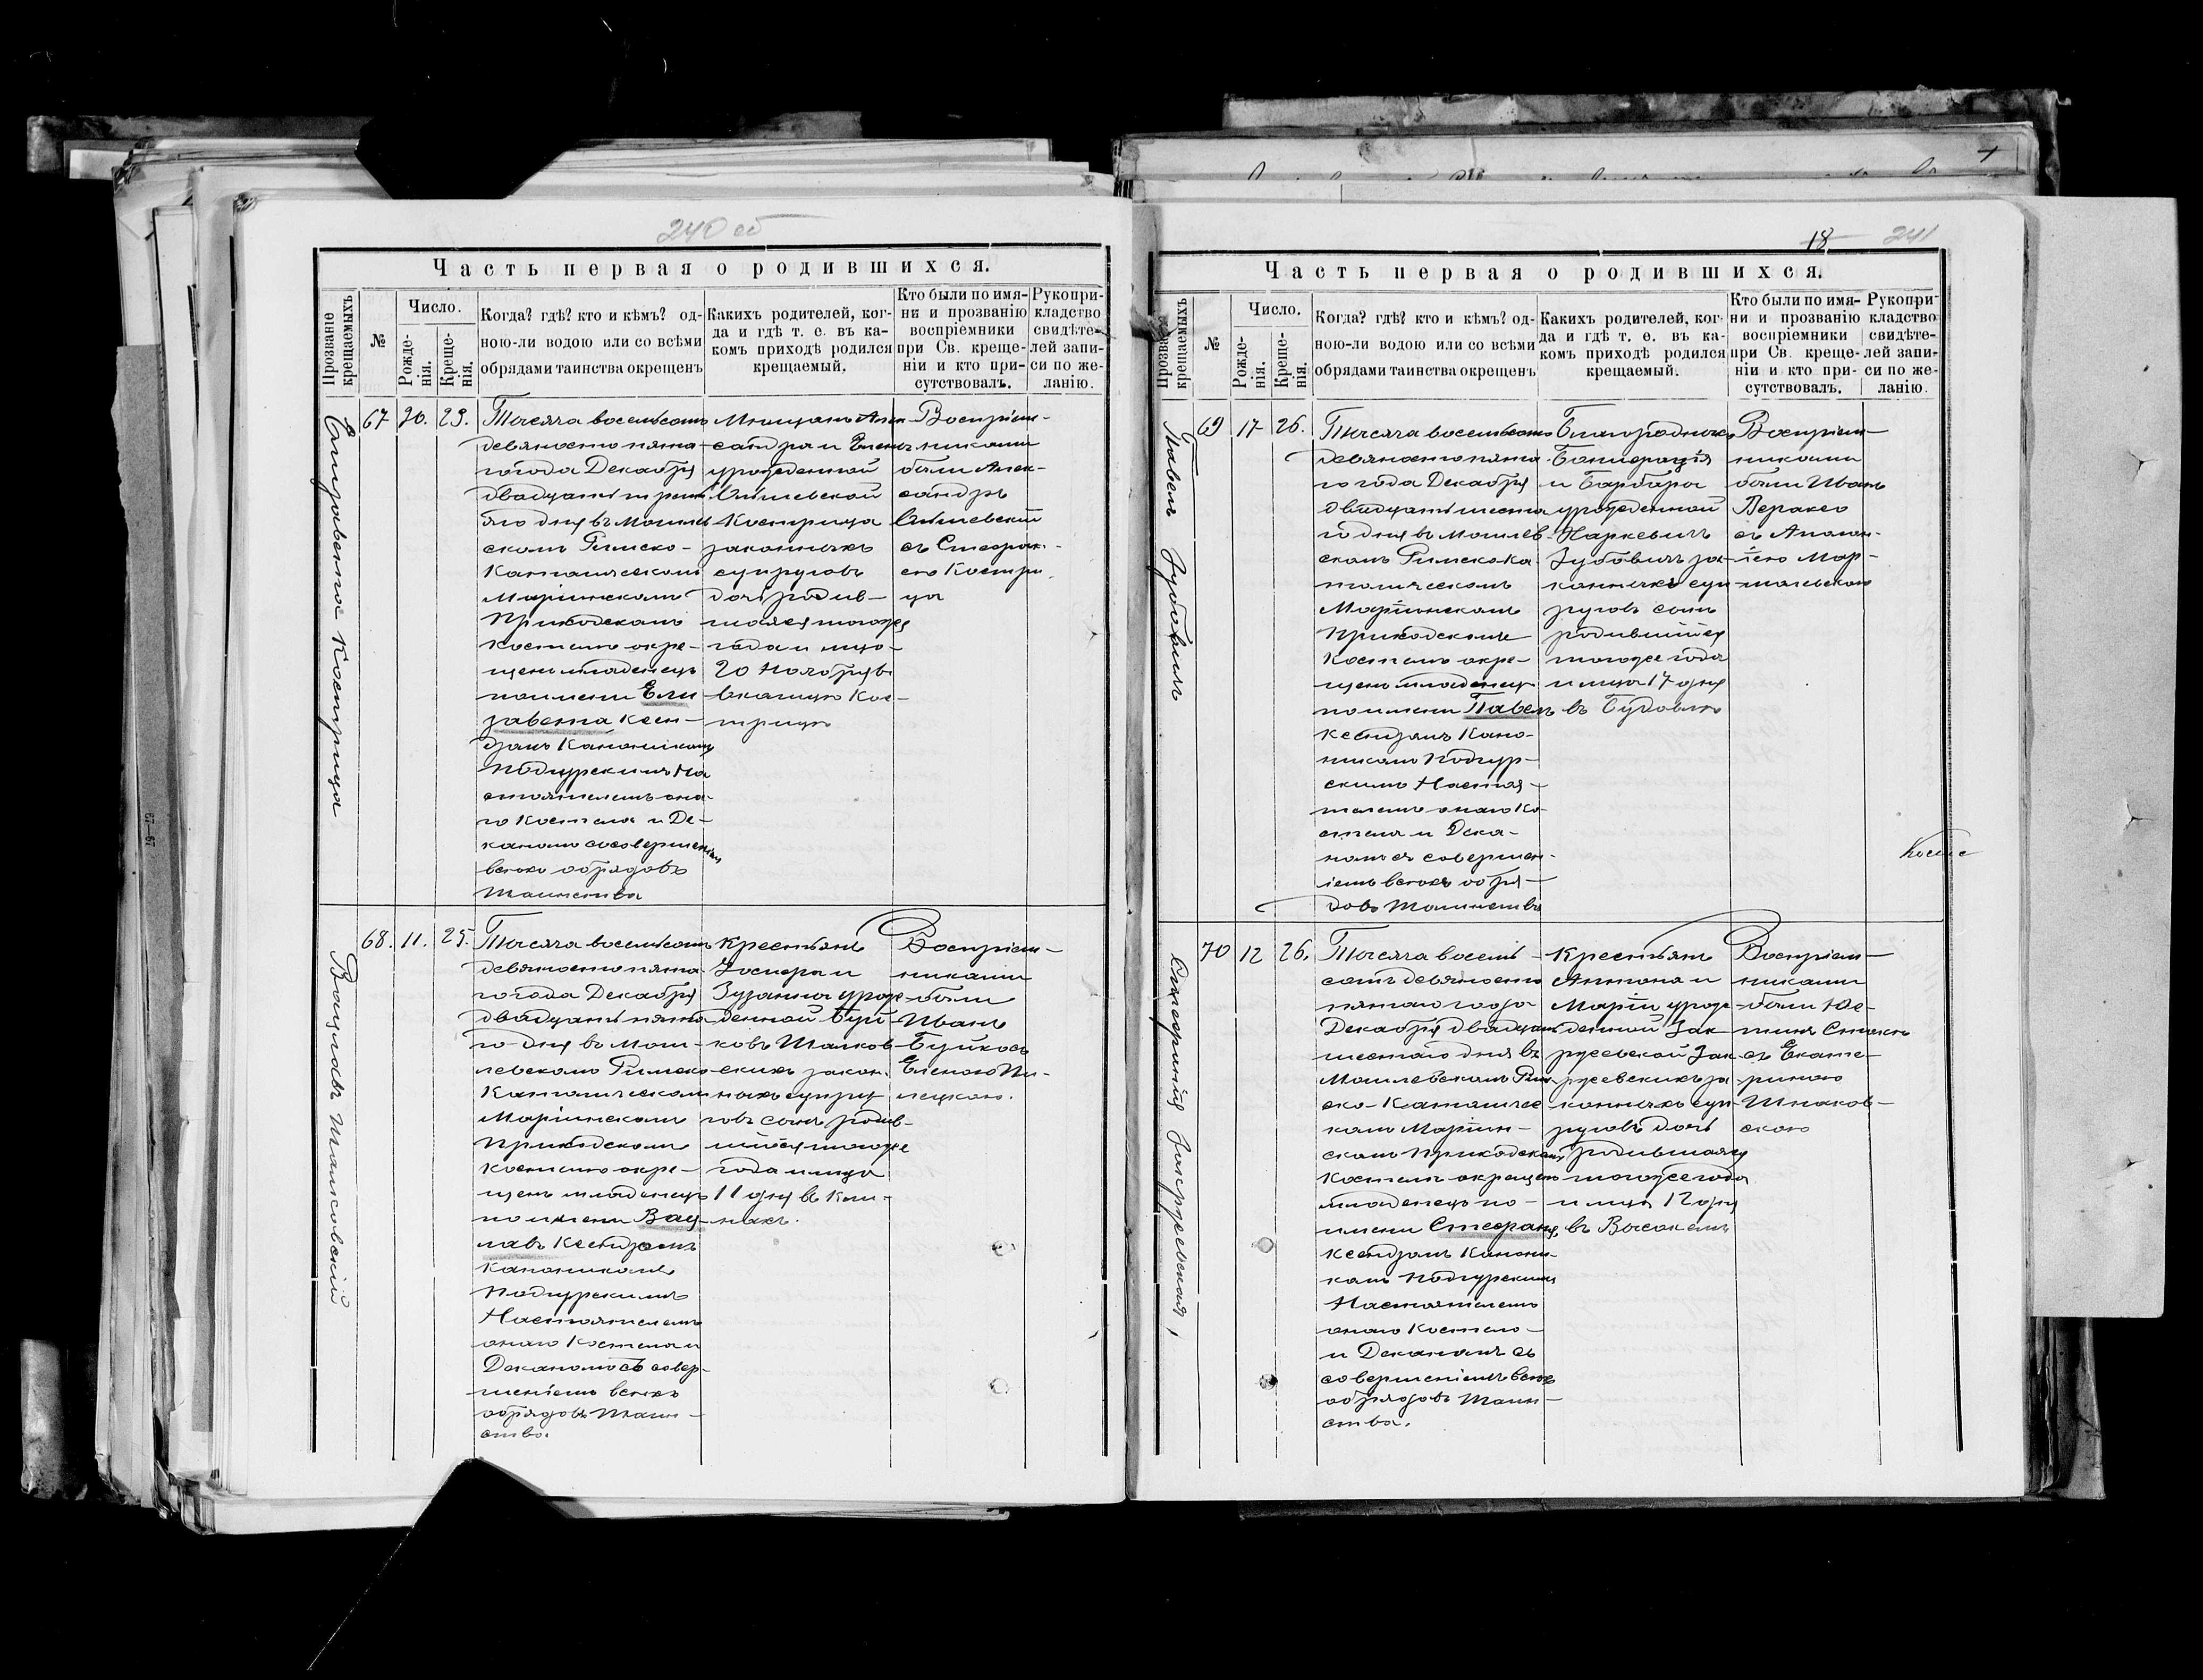 240 об
Часть первая о родившихся.
Прозваніе крещаемыхъ
№
Число.
Рожде-
нія.
Креще-
нія.
Когда? гдѣ? кто и кѣмъ? од-
ною-ли водою или со всѣми
обрядами таинства окрещенъ
Какихъ родителей, ког-
да и гдѣ т. е. въ ка-
комъ приходѣ родился
крещаемый.
Кто были по имя-
ни и прозванію
воспріемники
при Св. креще-
ніи и кто при-
сутствовалъ.
Рукопри-
кладство
свидѣте-
лей запи-
си по же-
ланію.
Елизавета Кострица
67
23.
Тысяча восемьсотъ
девяносто пята-
го года Декабря
двадцать треть
яго дня въ Могилев
скомъ Римско-
Католическомъ
Маріинскомъ
Приходскомъ
костелѣ окре-
щенъ младенецъ
по имени Ели
завета Ксен-
дзомъ Каноникомъ
Подгурскимъ На
стоятелемъ она-
го Костела и Де-
каномъ со совершеніем
всѣхъ обрядовъ
Таинства
Мещанъ Алек
сандра и Елены
урожденной
Кострица
законныхъ
супруговъ
дочь родив-
шаяся тогоже
года и мца
20 Ноября въ
Воспріем-
никами
были Алек-
сандръ
съ Стефан-
ею Костри
ца
Вацлавъ Шалковскій
68.
11.
25.
Тысяча восемьсотъ
девяносто пята-
го года Декабря
двадцать пята
го дня въ Моги-
левскомъ Римско
Католическомъ
Маріинскомъ
Приходскомъ
костелѣ окре-
щенъ младенецъ
по имени Вац-
лавъ Ксендзомъ
Каноникомъ
Подгурскимъ
Настоятелемъ
онаго Костела и
Деканомъ съ совер-
шеніемъ всѣхъ
обрядовъ Таин-
ства.
Крестьянъ
Іосифа и
Зузанны урож
денной Буй-
ковъ Шалков-
скихъ закон-
ныхъ супру
говъ сынъ родив-
шійся тогоже
года и мца
11 дня въ
Воспріем-
никами
были
Иванъ
Буйко съ
Еленою
18
241
Часть первая о родившихся.
Прозваніе крещаемыхъ
№
Число.
Рожде-
нія.
Креще-
нія.
Когда? гдѣ? кто и кѣмъ? од-
ною-ли водою или со всѣми
обрядами таинства окрещенъ
Какихъ родителей, ког-
да и гдѣ т. е. въ ка-
комъ приходѣ родился
крещаемый.
Кто были по имя-
ни и прозванію
воспріемники
при Св. креще-
ніи и кто при-
сутствовалъ.
Рукопри-
кладство
свидѣте-
лей запи-
си по же-
ланію.
Павелъ Зубовичъ
69
17
26.
Тысяча восемьсотъ
девяносто пята-
го года Декабря
двадцать шеста
го дня въ Могилев-
скомъ Римско Ка
толическомъ
Маріинскомъ
Приходскомъ
Костелѣ окре-
щенъ младенец
по имени Павелъ
Ксендзомъ Кано-
никомъ Подгур-
скимъ Настоя-
телемъ онаго Ко
стела и Дека-
номъ съ совершен-
іемъ всѣхъ обря-
довъ Таинства
Благородныхъ
Бонифація
и Барбары
урожденной
Наркевичъ
Зубовичъ за-
конныхъ суп
руговъ сынъ
родившійся
тогоже года
и мца 17 дня
въ
Воспріем-
никами
были Иванъ
съ Аполон-
іею Мар-
Стефанія Закржевская
70
12
26.
Тысяча восемь-
сотъ девяносто
пятаго года
Декабря двадцать
шестаго дня въ
Могилевскомъ Рим
ско-Католичес
комъ Маріин-
скомъ Приходскомъ
Костелѣ окрещенъ
младенецъ по-
имени Стефанія
Ксендзомъ Канони-
комъ Подгурскимъ
Настоятелемъ
онаго Костела
и Деканомъ съ
совершеніемъ всѣхъ
обрядовъ Таин-
ства.
Крестьянъ
Антона и
Маріи урож
денной Зак-
ржевской Зак-
ржевскихъ за
конныхъ суп-
руговъ дочь
родившаяся
тогоже года
и мца 12 дня
въ
Воспріем-
никами
были
съ Екате-
риною